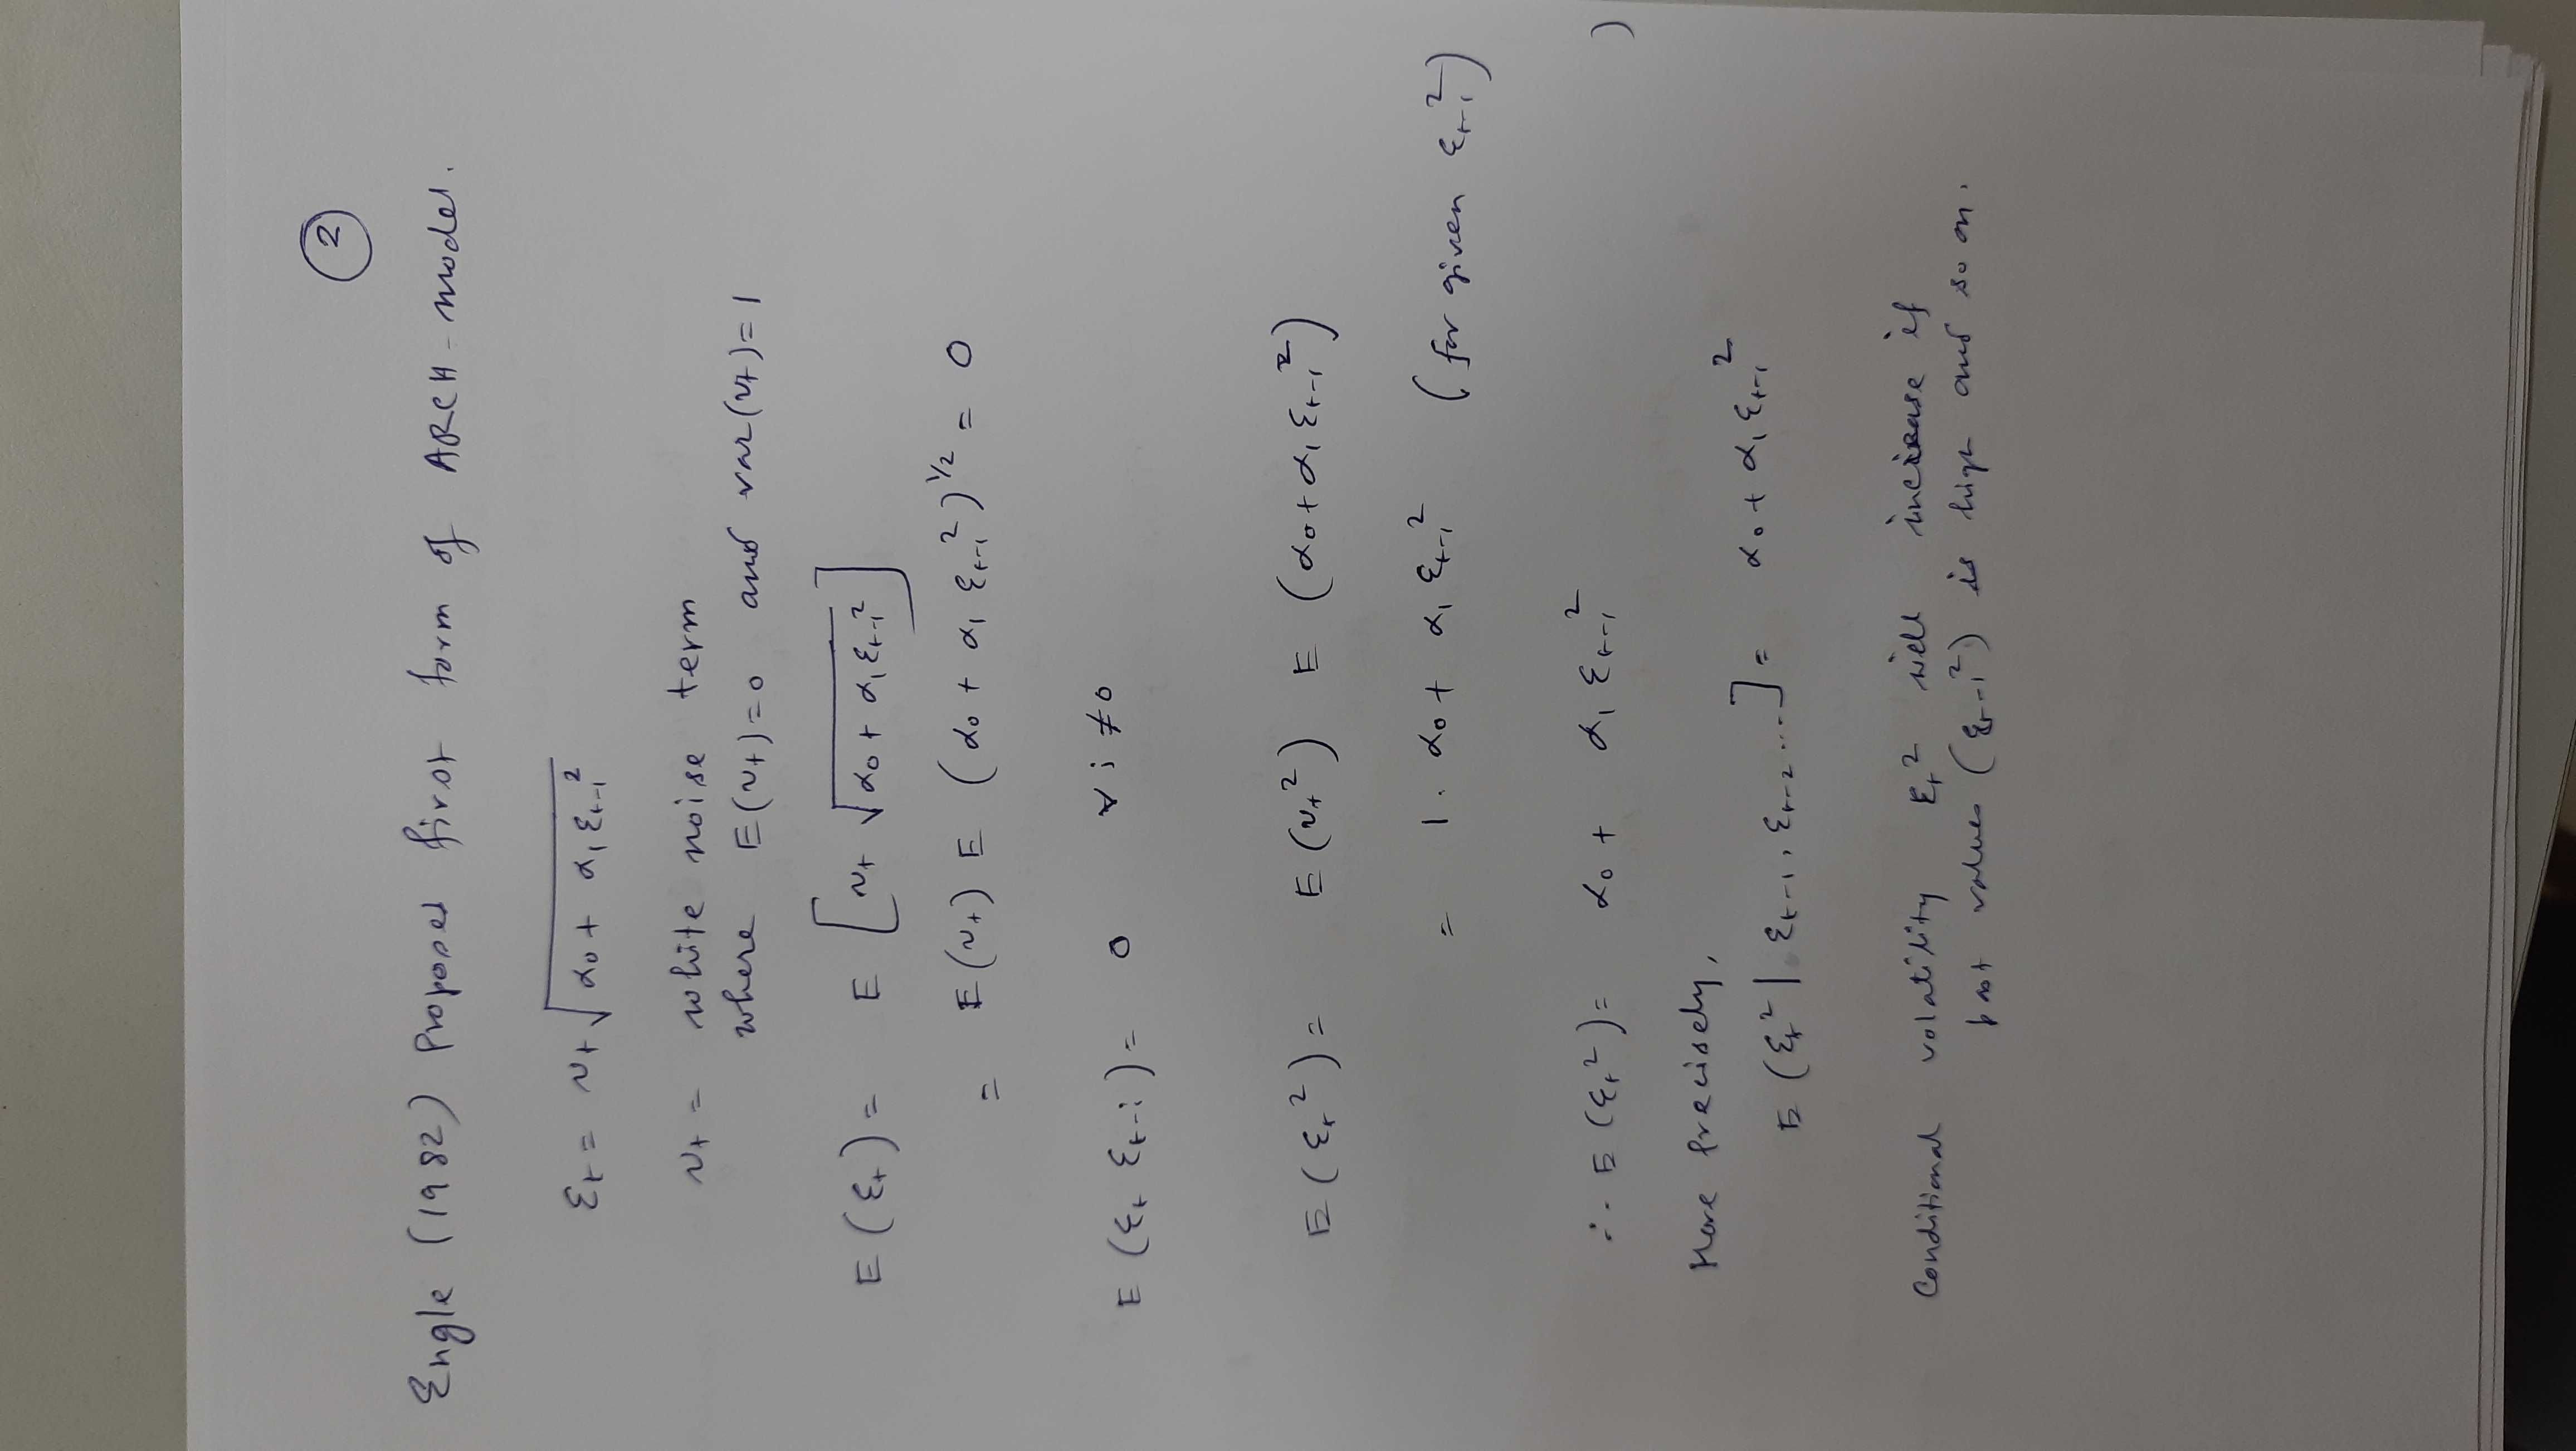 2
Engle (1982) Proposed first form of ARCH-model.
εt = vt √(α0 + α1 εt-1²)
vt = white noise term
where E(vt)=0 and var(vt)=1
E(εt) = E [vt √(α0 + α1 εt-1²)]
= E(vt) E (α0 + α1 εt-1²)^1/2 = 0
E (εt εt-i) = 0 ∀ i ≠ 0
E(εt²) = E(vt²) E (α0 + α1 εt-1²)
= 1. α0 + α1 εt-1² (for given εt-1²)
∴ E(εt²) = α0 + α1 εt-1² )
More Precisely,
E (εt² | εt-1, εt-2 ...] = α0 + α1 εt-1²
Conditional volatility εt² will increase if
past values (εt-1²) is high and so on.